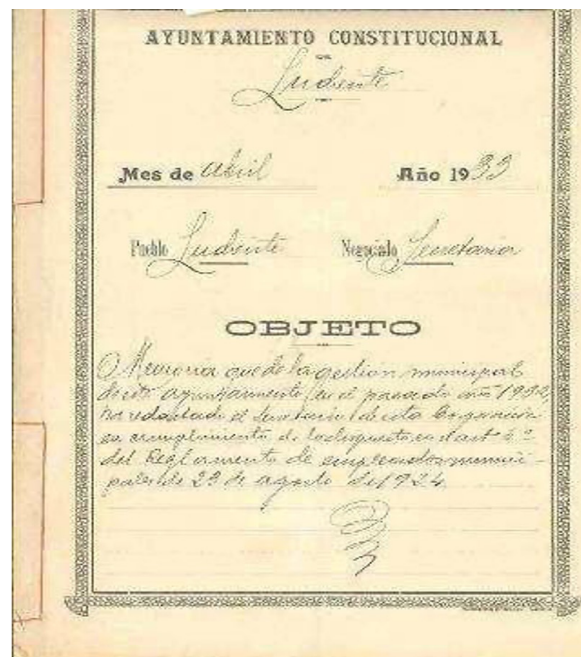 AYUNTAMIENTO CONSTITUCIONAL
Ludiente
Mes de abril Año 1933
Pueblo Ludiente Negociado Secretaria
OBJETO
Memoria que de la gestión municipal
de este ayuntamiento, en el pasado año 1932,
ha redactado el Secretario de esta Corporación
en cumplimiento de lo dispuesto en el art 6º
del Reglamento de empleados munici-
pales de 23 de agosto de 1924.